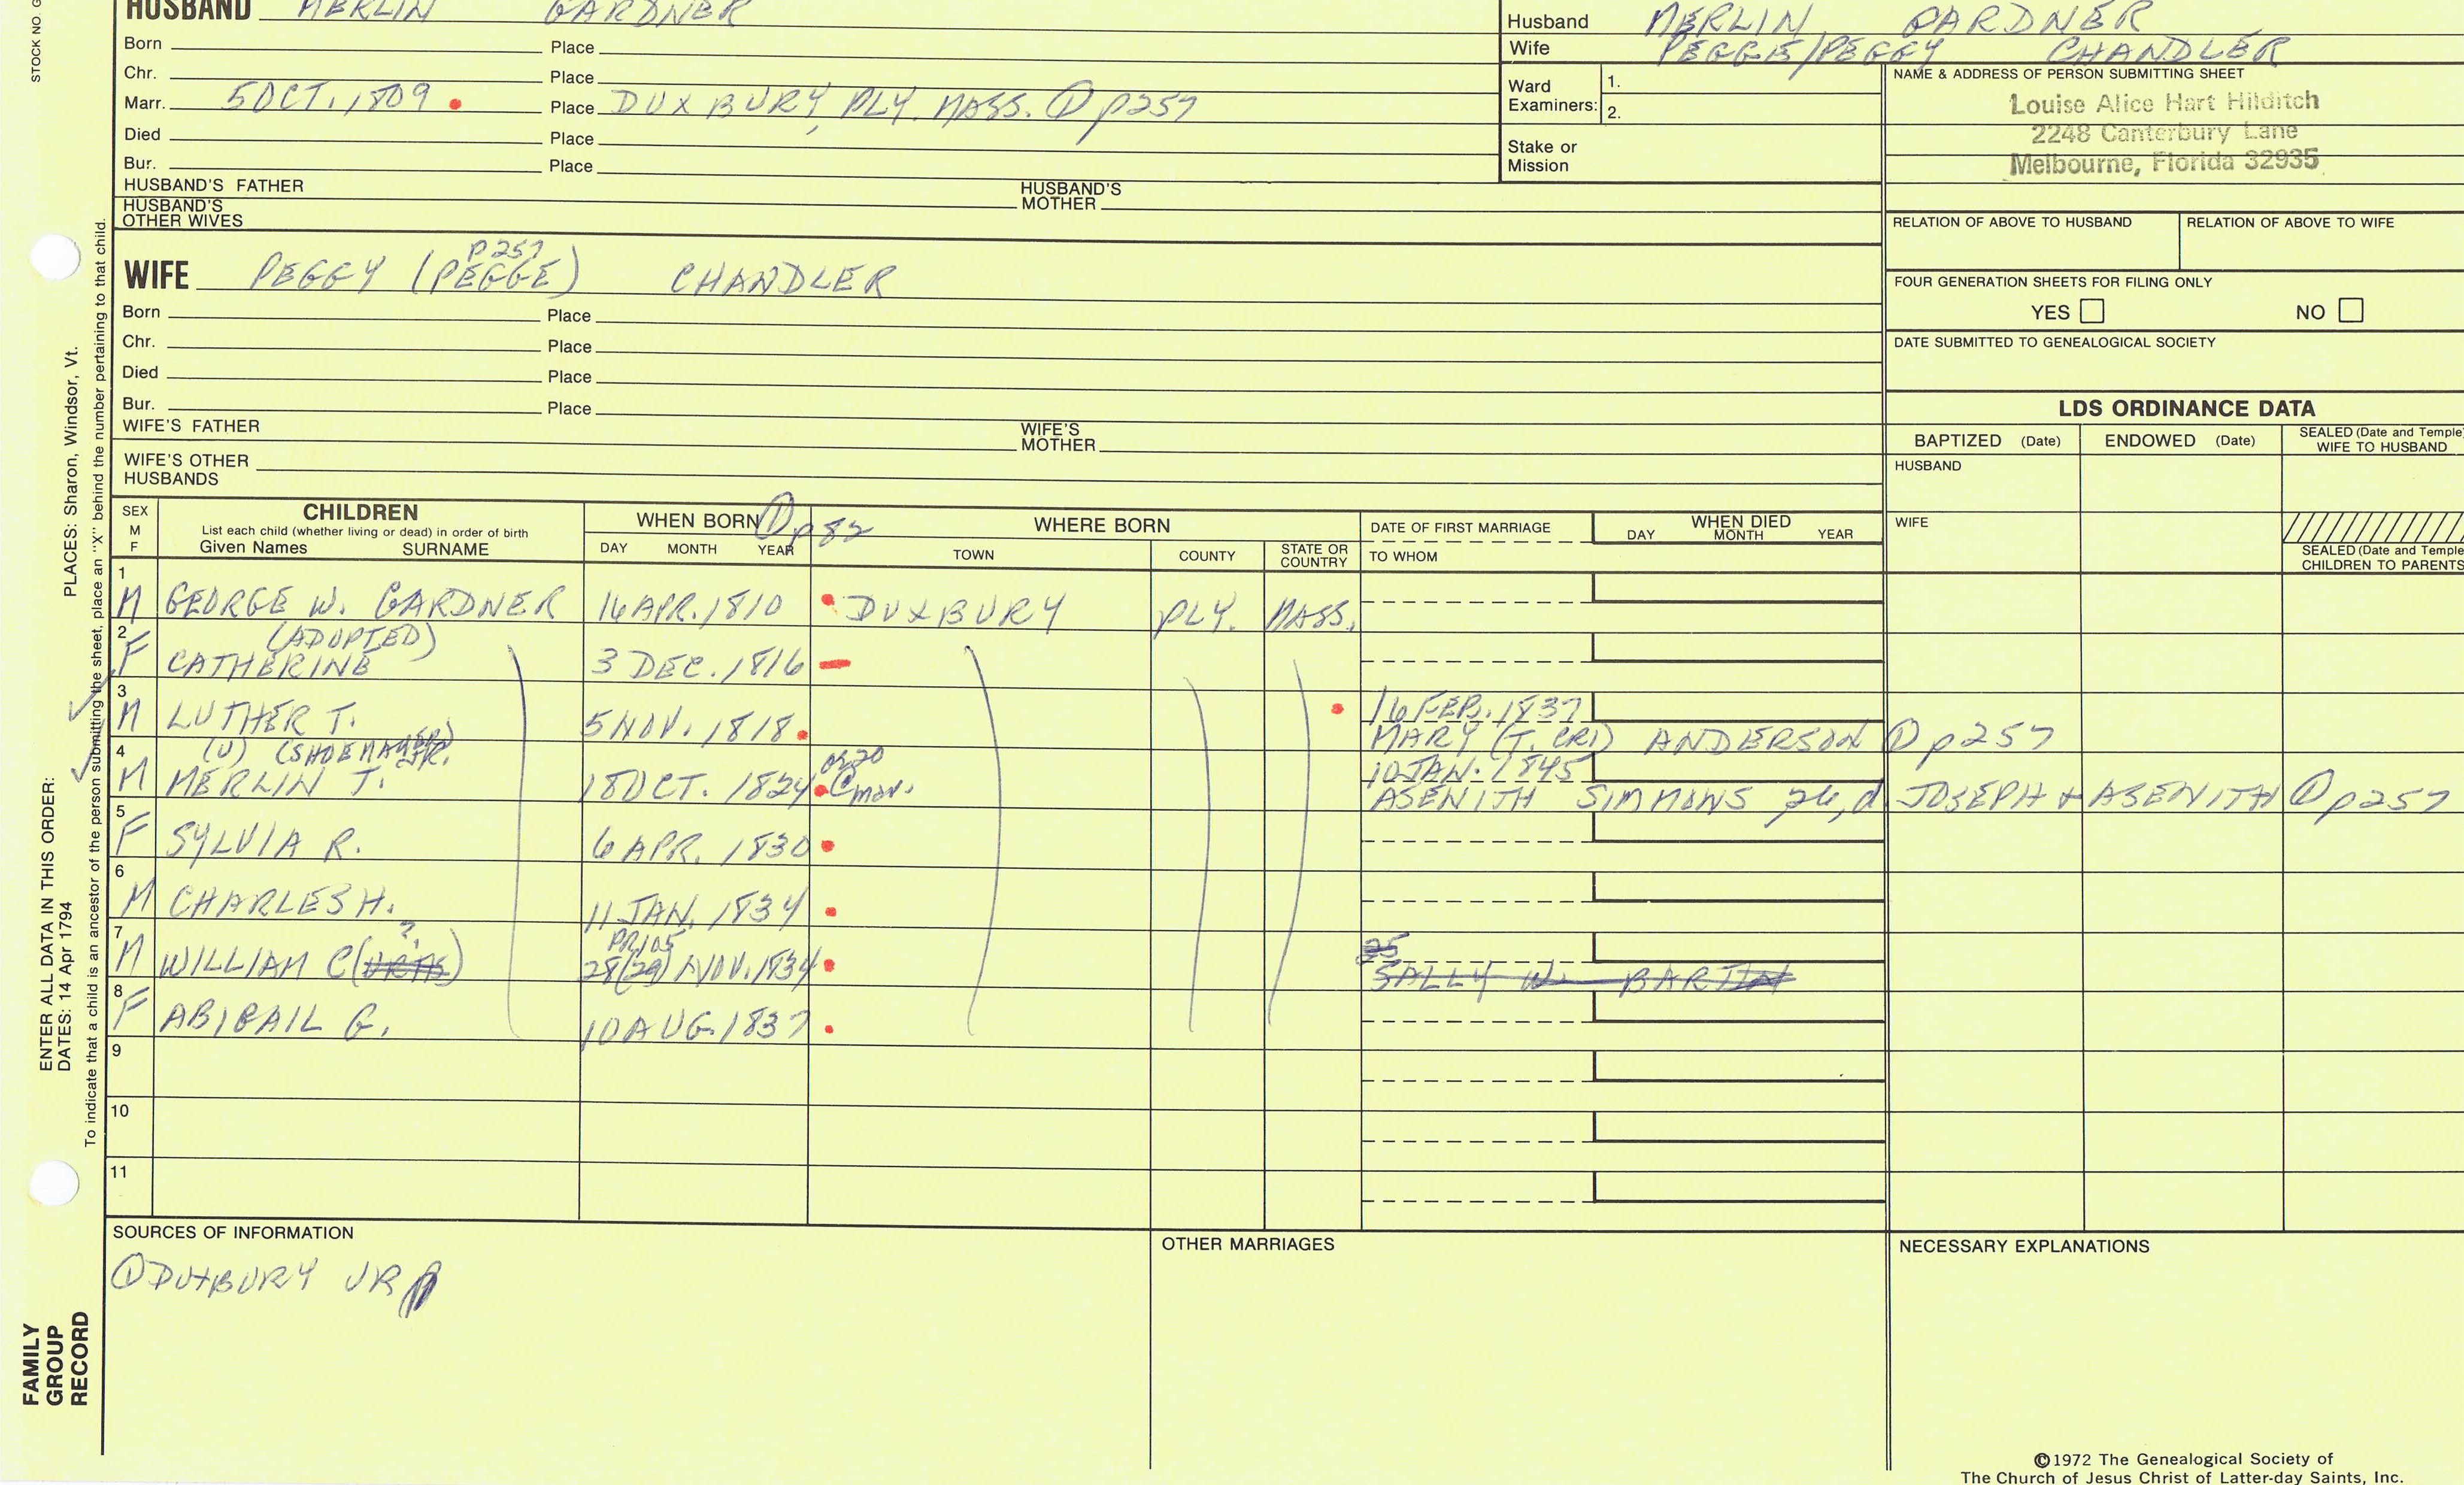 HUSBAND MERLIN GARDNER
Born Place
Chr. Place
Marr. 5 OCT. 1809 Place DUXBURY, PLY. MASS. ① p257
Died Place
Bur. Place
HUSBAND'S FATHER HUSBAND'S MOTHER
HUSBAND'S OTHER WIVES
Husband MERLIN GARDNER
Wife PEGGE/PEGGY CHANDLER
Ward Examiners: 1.
2.
Stake or Mission
NAME & ADDRESS OF PERSON SUBMITTING SHEET
Louise Alice Hart Hilditch
2248 Canterbury Lane
Melbourne, Florida 32935
RELATION OF ABOVE TO HUSBAND RELATION OF ABOVE TO WIFE
FOUR GENERATION SHEETS FOR FILING ONLY
YES NO
DATE SUBMITTED TO GENEALOGICAL SOCIETY
p257
WIFE PEGGY (PEGGE) CHANDLER
Born Place
Chr. Place
Died Place
Bur. Place
WIFE'S FATHER WIFE'S MOTHER
WIFE'S OTHER HUSBANDS
LDS ORDINANCE DATA
BAPTIZED (Date) ENDOWED (Date) SEALED (Date and Temple) WIFE TO HUSBAND
HUSBAND
WIFE
SEALED (Date and Temple) CHILDREN TO PARENTS
SEX M F
CHILDREN
List each child (whether living or dead) in order of birth
Given Names SURNAME
WHEN BORN ① p82
DAY MONTH YEAR
WHERE BORN
TOWN COUNTY STATE OR COUNTRY
DATE OF FIRST MARRIAGE
TO WHOM
WHEN DIED
DAY MONTH YEAR
1 M GEORGE W. GARDNER 16 APR. 1810 DUXBURY PLY. MASS.
(ADOPTED)
2 F CATHERINE 3 DEC. 1816
3 M LUTHER T. 5 NOV. 1818 16 FEB. 1837
MARY (T. CR1) ANDERSON ① p257
(U) (SHOEMAKER) JR.
4 M MERLIN T. 18 OCT. 1824 or 20 @ mar. 10 JAN. 1845
ASENITH SIMMONS 24, d JOSEPH + ASENITH ① p257
5 F SYLVIA R. 6 APR. 1830
6 M CHARLES H. 11 JAN. 1834
?
7 M WILLIAM C 28(29) NOV. 1834 25
SALLY W. BARTIN
8 F ABIGAIL G. 10 AUG. 1837
9
10
11
SOURCES OF INFORMATION
① DUXBURY VR
OTHER MARRIAGES
NECESSARY EXPLANATIONS
©1972 The Genealogical Society of
The Church of Jesus Christ of Latter-day Saints, Inc.
STOCK NO. G
PLACES: Sharon, Windsor, Vt.
To indicate that a child is an ancestor of the person submitting the sheet, place an "X" behind the number pertaining to that child.
ENTER ALL DATA IN THIS ORDER:
DATES: 14 Apr 1794
FAMILY
GROUP
RECORD